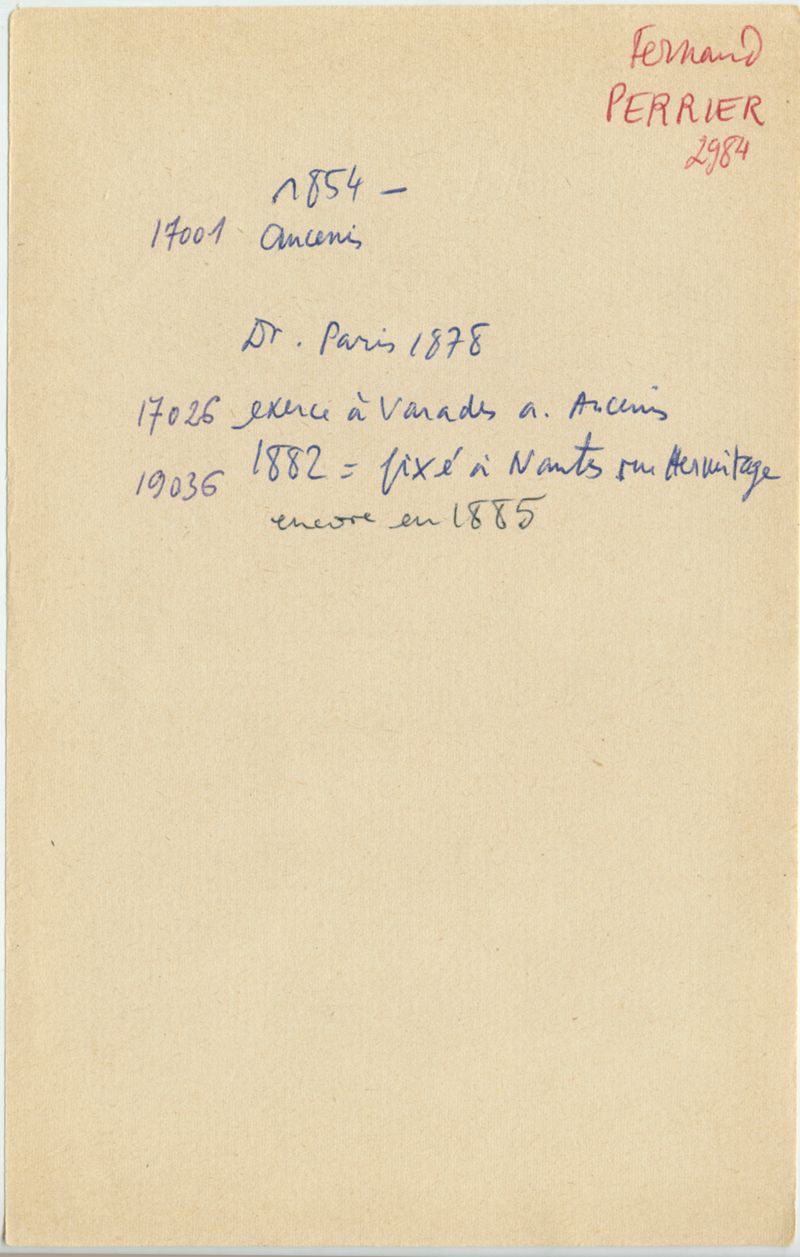 Fernand
PERRIER
2984
1854 –
17001 Ancenis
Dr. Paris 1878
17026 exerce à Varades a. Ancenis
19036 1882 = fixé à Nantes rue Hermitage
encore en 1885